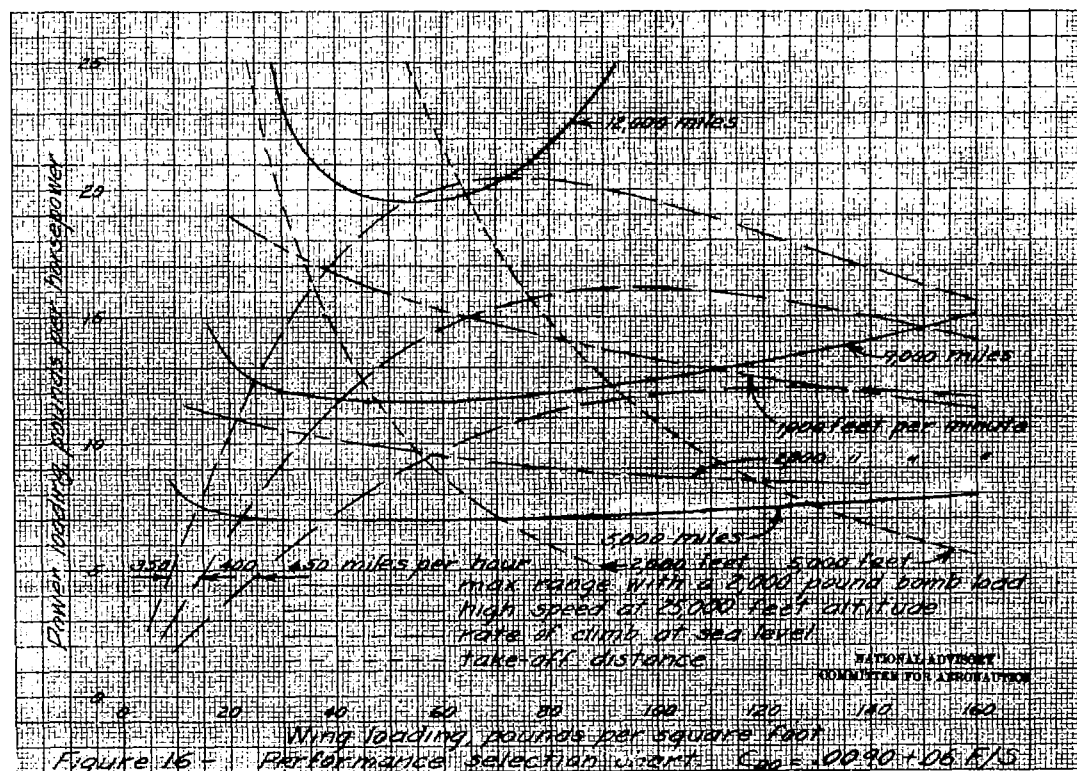 25
12,000 miles
Power loading, pounds per horsepower
20
15
9,000 miles
1,000 feet per minute
10
2,000 " " "
5,000 miles
5
350
400
450 miles per hour
2,000 feet
5,000 feet
max range with a 2,000 pound bomb load
high speed at 25,000 feet altitude
rate of climb at sea level
take-off distance
NATIONAL ADVISORY
COMMITTEE FOR AERONAUTICS
0
0 20 40 60 80 100 120 140 160
Wing loading, pounds per square foot
Figure 16 - Performance selection chart = .0090 + .06 F/S